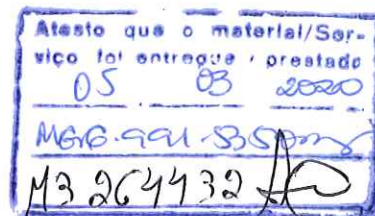 Atesto que o material/Ser-
viço foi entregue / prestado
05 03 2020
M3264432